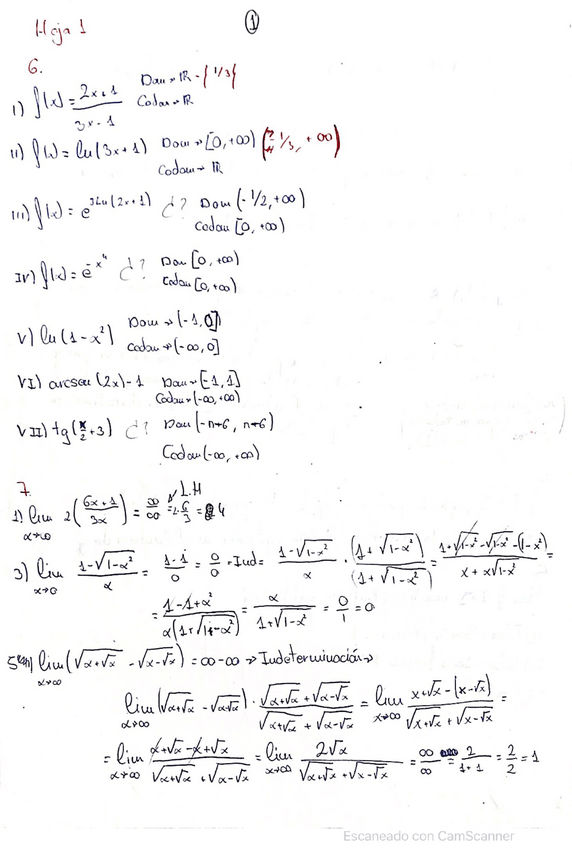 Hoja 1
①
6.
I) f(x) = (2x+1)/(3x-1) Dom → ℝ - {1/3}
Codom → ℝ
II) f(x) = ln(3x+1) Dom → [0, +∞) (-1/3, +∞)
Codom → ℝ
III) f(x) = e^(3Ln(2x+1)) ¿? Dom (-1/2, +∞)
Codom [0, +∞)
IV) f(x) = e^(-x⁴) ¿? Dom [0, +∞)
Codom [0, +∞)
V) ln(1-x²) Dom → (-1, 0]
Codom → (-∞, 0]
VI) arcsen(2x)-1 Dom → [-1, 1]
Codom → (-∞, +∞)
VII) tg(x/2+3) ¿? Dom (-π+6, π+6)
Codom (-∞, +∞)
7.
L.H
1) lim x→∞ 2((6x+1)/3x) = ∞/∞ = 2·6/3 = 4
3) lim x→0 (1-√(1-x²))/x = (1-1)/0 = 0/0 → Ind = (1-√(1-x²))/x · (1+√(1-x²))/(1+√(1-x²)) = (1+√(1-x²)-√(1-x²)-(1-x²))/(x+x√(1-x²)) =
= (1-1+x²)/(x(1+√(1-x²))) = x/(1+√(1-x²)) = 0/1 = 0
lim x→∞ (√(x+√x) - √(x-√x)) = ∞-∞ → Indeterminación →
lim x→∞ (√(x+√x) - √(x-√x)) · (√(x+√x) + √(x-√x))/(√(x+√x) + √(x-√x)) = lim x→∞ (x+√x-(x-√x))/(√(x+√x) + √(x-√x)) =
= lim x→∞ (x+√x-x+√x)/(√(x+√x) + √(x-√x)) = lim x→∞ 2√x/(√(x+√x) + √(x-√x)) = ∞/∞ = 2/(1+1) = 2/2 = 1
Escaneado con CamScanner